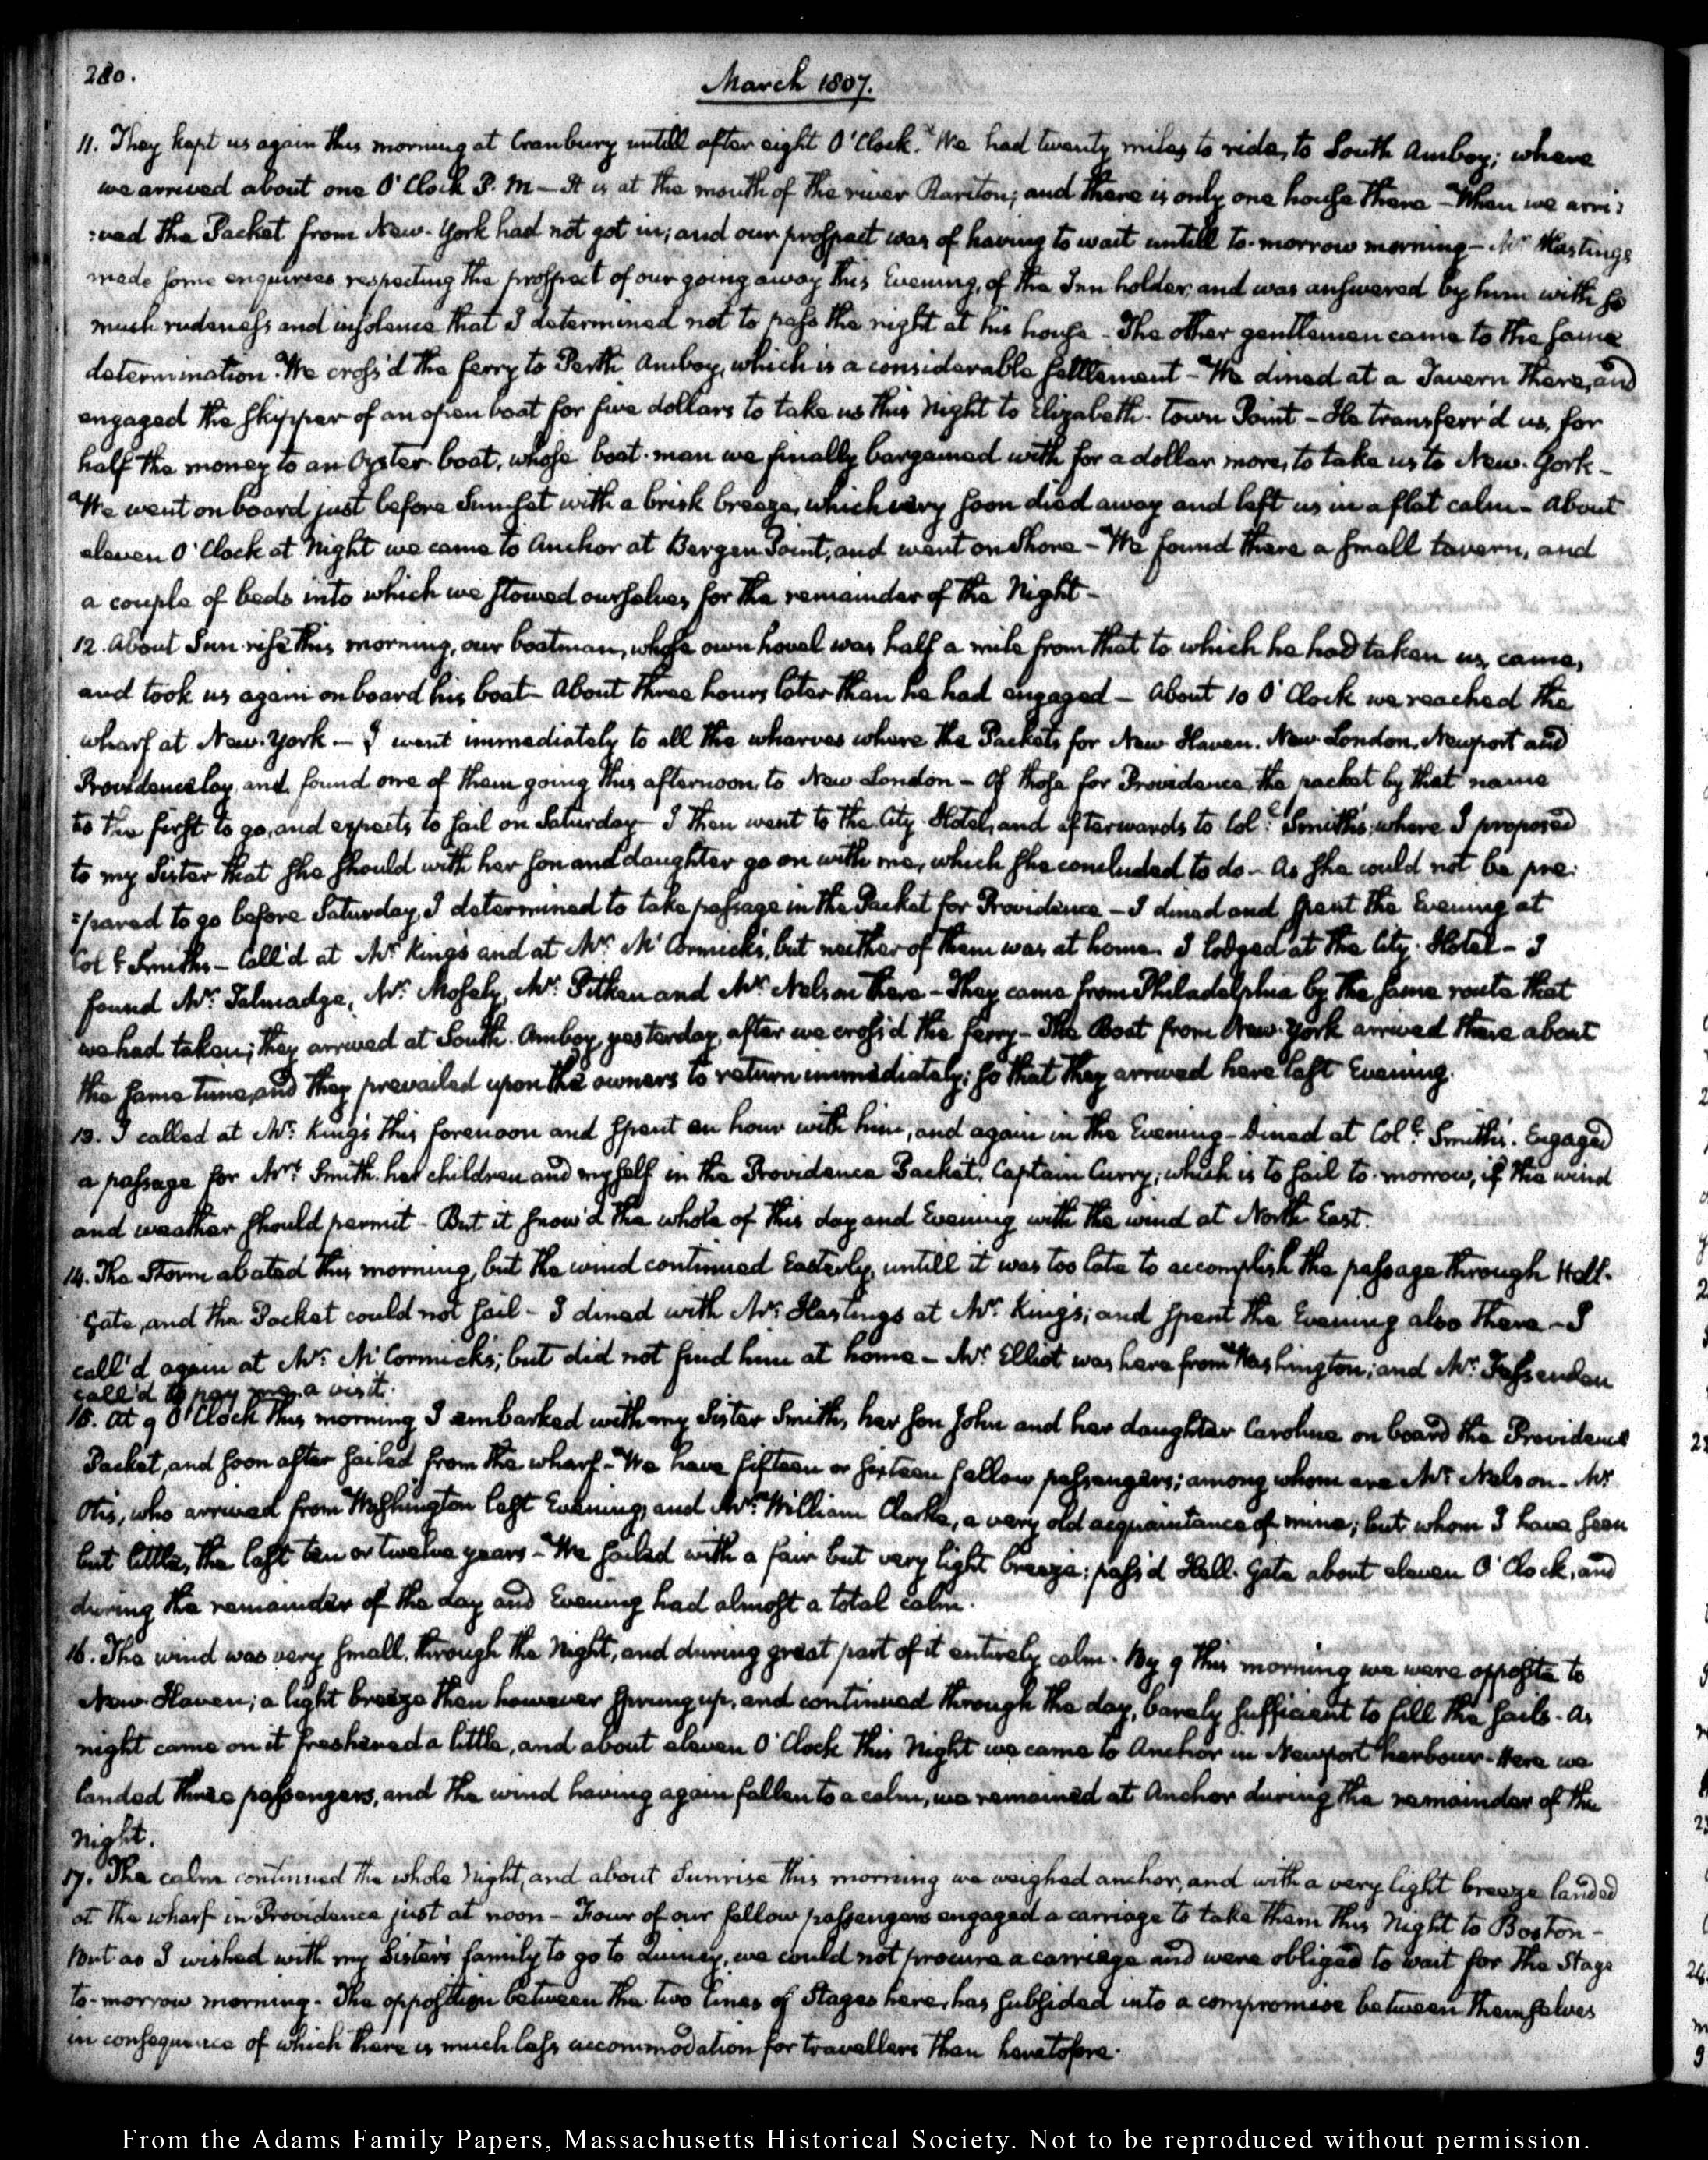 280.
March 1807.
11. They kept us again this morning at Cranbury untill after eight O'Clock. We had twenty miles to ride, to South Amboy; where
we arrived about one O'Clock P. M — It is at the mouth of the river Rariton; and there is only one house there — When we arri:
:ved the Packet from New-York had not got in; and our prospect was of having to wait untill to-morrow morning — Mr. Hastings
made some enquiries respecting the prospect of our going away this Evening, of the Inn holder, and was answered by him with so
much rudeness and insolence that I determined not to pass the night at his house — The other gentlemen came to the same
determination. We cross'd the ferry to Perth Amboy, which is a considerable settlement — We dined at a Tavern there, and
engaged the skipper of an open boat for five dollars to take us this Night to Elizabeth-town Point — He transferr'd us, for
half the money to an Oyster-boat, whose boat-man we finally bargained with for a dollar more, to take us to New-York —
We went on board just before Sunset with a brisk breeze, which very soon died away and left us in a flat calm — About
eleven O'Clock at Night we came to Anchor at Bergen Point, and went on Shore — We found there a small tavern, and
a couple of beds into which we stowed ourselves for the remainder of the Night —
12. About Sun-rise this morning, our boatman, whose own hovel was half a mile from that to which he had taken us, came,
and took us again on board his boat — About three hours later than he had engaged — About 10 O'Clock we reached the
wharf at New-York — I went immediately to all the wharves where the Packets for New-Haven, New-London, Newport and
Providence lay, and found one of them going this afternoon, to New-London — Of those for Providence, the packet by that name
is the first to go, and expects to sail on Saturday — I then went to the City Hotel, and afterwards to Coll. Smith's; where I proposed
to my Sister that she should with her son and daughter go on with me, which she concluded to do — As she could not be pre:
:pared to go before Saturday, I determined to take passage in the Packet for Providence — I dined and spent the Evening at
Coll. Smith's — Call'd at Mr. King's and at Mr. McCormick's, but neither of them was at home. I lodged at the City-Hotel — I
found Mr. Talmadge, Mr. Mosely, Mr. Pitken and Mr. Nelson there — They came from Philadelphia by the same route that
we had taken; they arrived at South-Amboy, yesterday, after we cross'd the ferry — The Boat from New-York arrived there about
the same time, and they prevailed upon the owners to return immediately; so that they arrived here last Evening.
13. I called at Mr. King's this forenoon and spent an hour with him, and again in the Evening — Dined at Coll. Smith's. Engaged
a passage for Mrs. Smith, her children and myself in the Providence Packet, Captain Curry; which is to sail to-morrow, if the wind
and weather should permit — But it snow'd the whole of this day and Evening with the wind at North East.
14. The Storm abated this morning, but the wind continued Easterly, untill it was too late to accomplish the passage through Hell-
Gate, and the Packet could not sail — I dined with Mr. Hastings at Mr. King's; and spent the Evening also there — I
call'd again at Mr. McCormick's; but did not find him at home — Mr. Elliot was here from Washington; and Mr. Fessenden
call'd to pay me a visit.
15. At 9 O'Clock this morning I embarked with my Sister Smith, her son John and her daughter Caroline on board the Providence
Packet, and soon after sailed from the wharf — We have fifteen or sixteen fellow passengers; among whom are Mr. Nelson — Mr.
Otis, who arrived from Washington last Evening, and Mr. William Clarke, a very old acquaintance of mine; but whom I have seen
but little, the last ten or twelve years — We sailed with a fair but very light breeze; pass'd Hell-Gate about eleven O'Clock, and
during the remainder of the day and Evening had almost a total calm.
16. The wind was very small, through the Night, and during great part of it entirely calm. By 9 this morning we were opposite to
New-Haven; a light breeze then however sprung up, and continued through the day, barely sufficient to fill the sails — As
night came on it freshened a little, and about eleven O'Clock this Night we came to Anchor in Newport harbour — Here we
landed three passengers, and the wind having again fallen to a calm, we remained at Anchor during the remainder of the
Night.
17. The calm continued the whole Night, and about Sunrise this morning we weighed anchor, and with a very light breeze landed
at the wharf in Providence just at noon — Four of our fellow passengers engaged a carriage to take them this Night to Boston —
But as I wished with my Sister's family to go to Quincy, we could not procure a carriage and were obliged to wait for the Stage
to-morrow morning — The opposition between the two lines of Stages here, has subsided into a compromise between themselves
in consequence of which there is much less accommodation for travellers than heretofore.
From the Adams Family Papers, Massachusetts Historical Society. Not to be reproduced without permission.